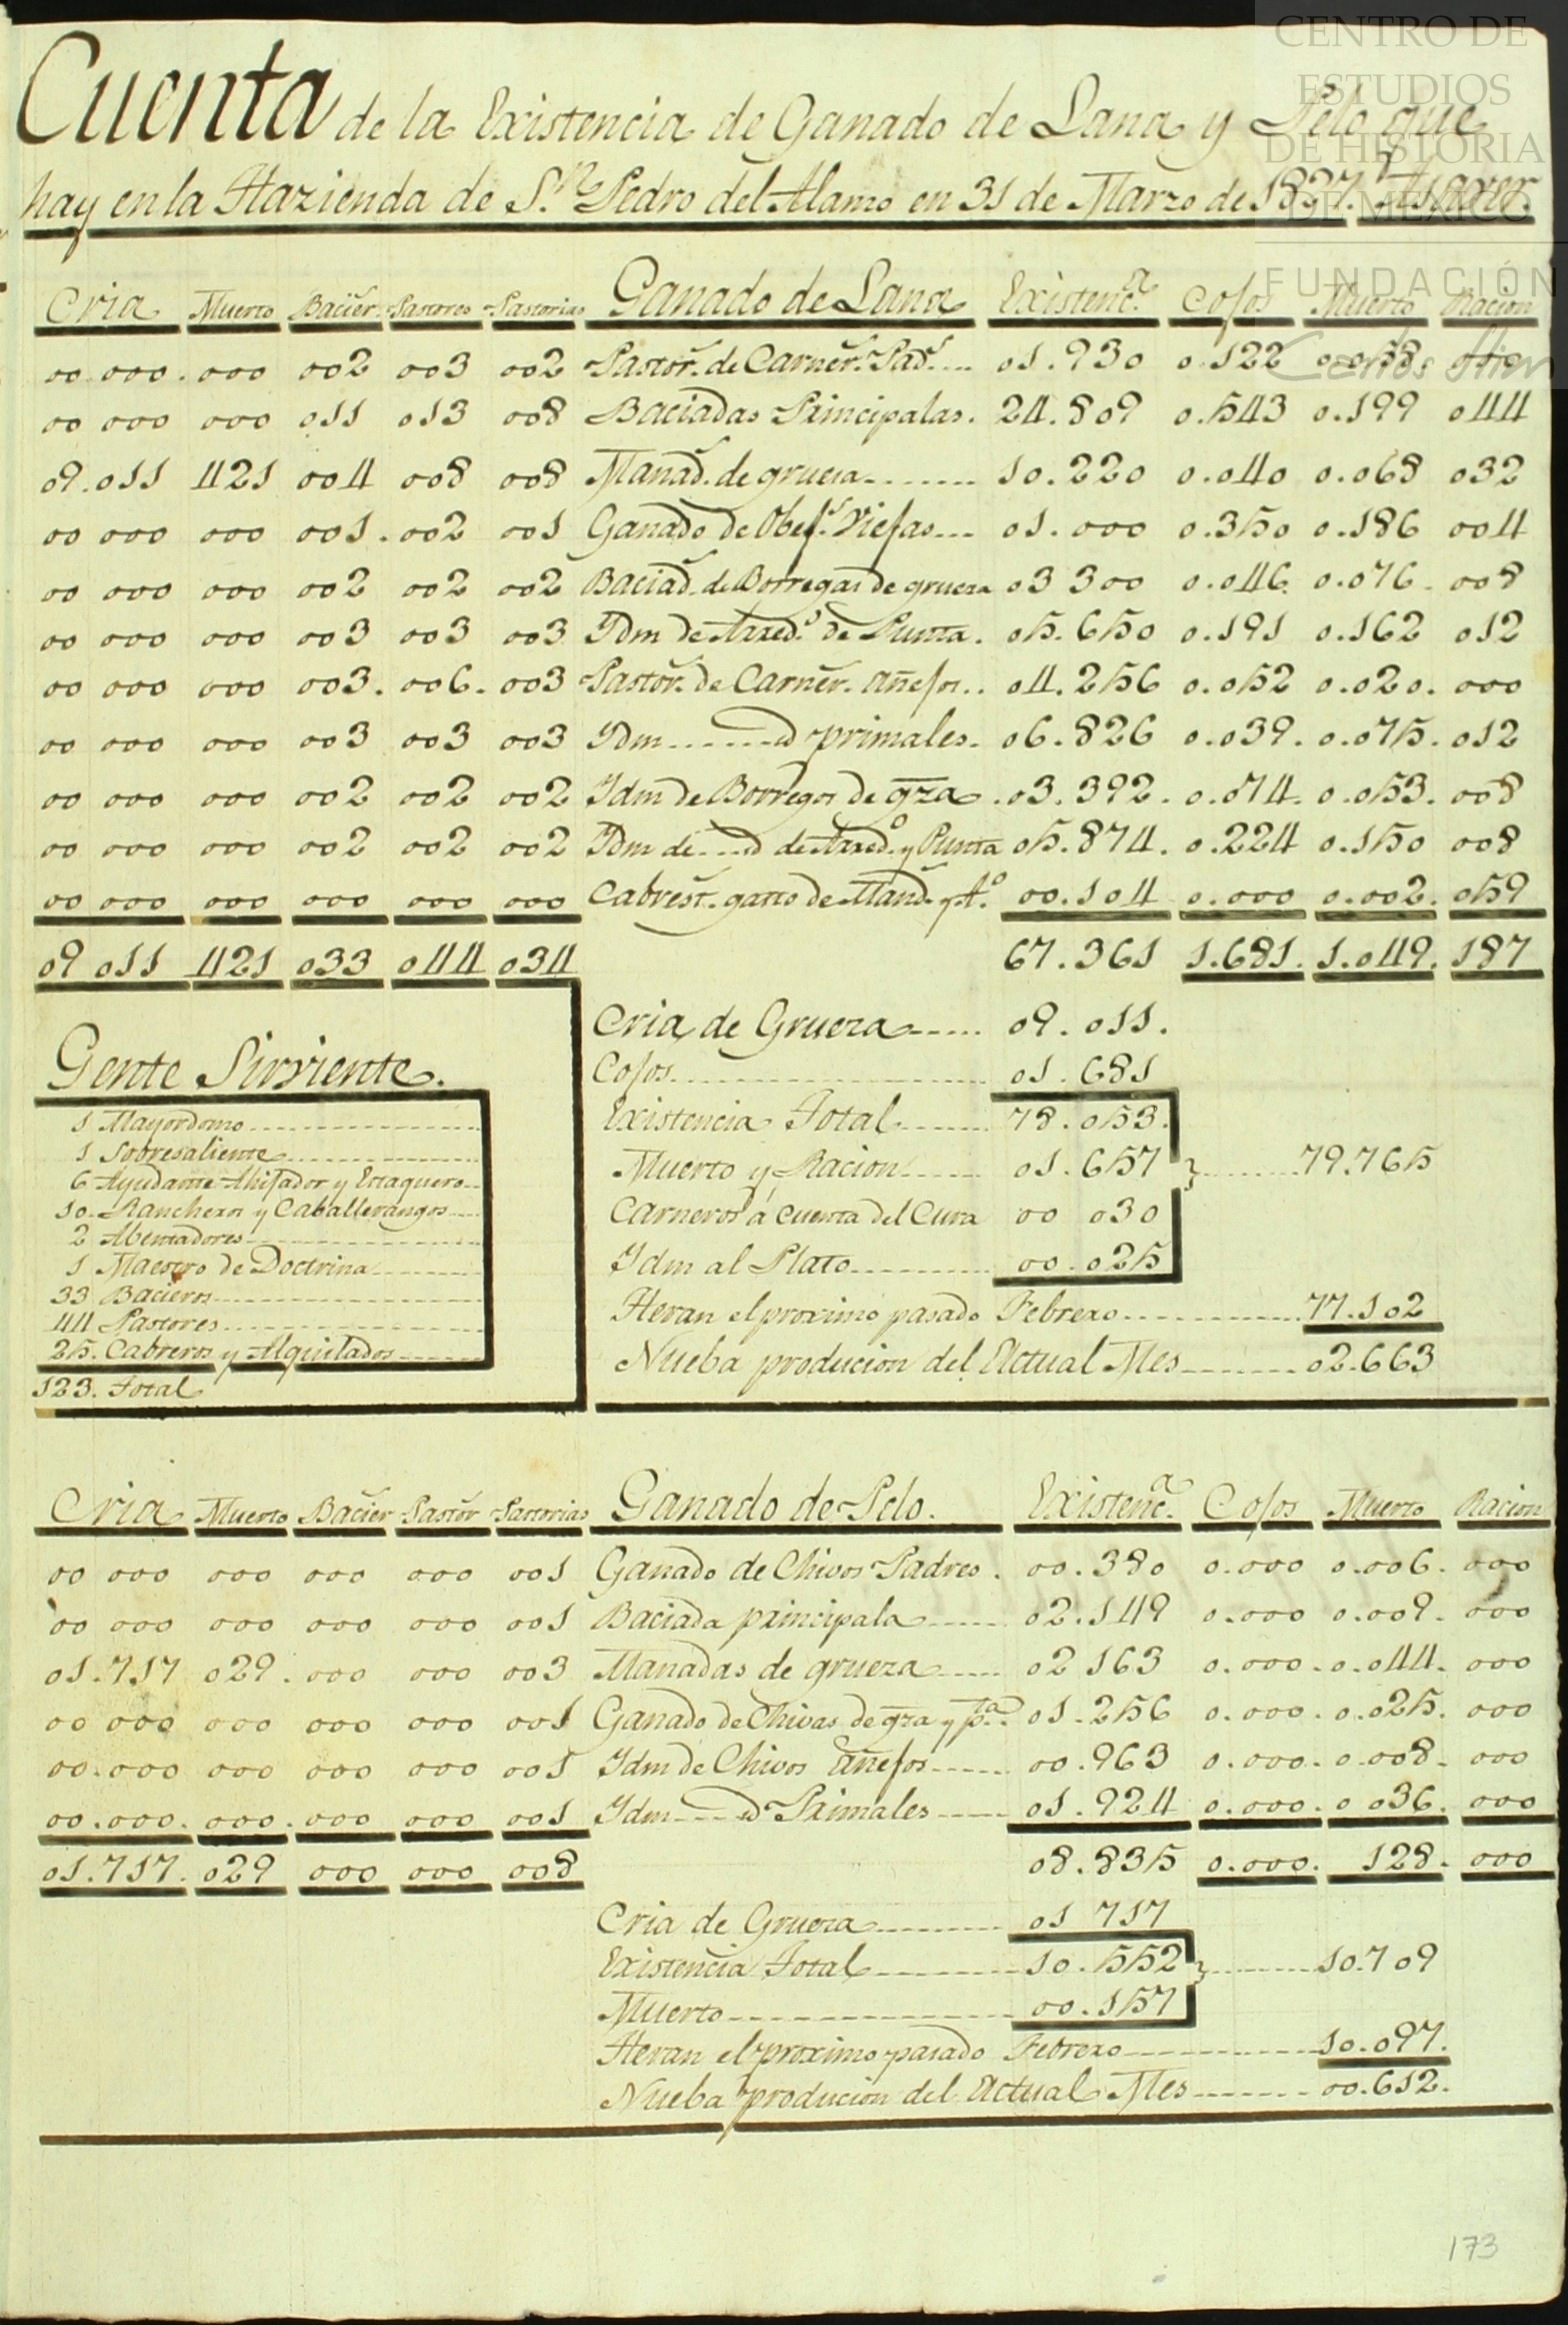 Cuenta de la Existencia de Ganado de Lana y Pelo que
hay en la Hazienda de S.n Pedro del Alamo en 31 de Marzo de 1827. Asaver.
CENTRO DE
ESTUDIOS
DE HISTORIA
DE MEXICO
FUNDACIÓN
Carlos Slim
Cria Muerto Bacier. Pastores Pastorias Ganado de Lana Existenc.a Cojos Muerto Racion
00 000. 000 002 003 002 Pastor.s de Carner.s Pad.s 01.930 0.122 0.058. 000
00 000 000 011 013 008 Baciadas Principalas. 24.809 0.543 0.199 044
09.011 421 004 008 008 Manad.s de grueza 10.220 0.040 0.068 032
00 000 000 001. 002 001 Ganado de Obej.s Viejas 01.000 0.350 0.186 004
00 000 000 002 002 002 Baciad.s de Borregas de grueza 03 300 0.046. 0.076. 008
00 000 000 003 003 003 Idm de Axed.s de Punta. 05.650 0.191 0.162 012
00 000 000 003. 006. 003 Pastor.s de Carner.s añejos.. 04.256 0.052 0.020. 000
00 000 000 003 003 003 Idm d primales. 06.826 0.039. 0.075. 012
00 000 000 002 002 002 Idm de Borregos de gza. 03.392. 0.074. 0.053. 008
00 000 000 002 002 002 Idm de d de Axed.o y Punta 05.874. 0.224 0.150 008
00 000 000 000 000 000 Cabrest.s gasto de Manad.s y A.o 00.104 0.000 0.002. 059
09 011 421 033 044 034 67.361 1.681. 1.049. 187
Cria de Grueza 09.011.
Cojos 01.681
Existencia Total 78.053.
Muerto y Racion 01.657 79.765
Carneros á cuenta del Cura 00 030
Idm al Plato 00.025
Heran el proximo pasado Febrero 77.102
Nueba producion del Actual Mes 02.663
Gente Sirviente.
1 Mayordomo
1 Sobresaliente
6 Ayudante Ahijador y Etaquero
10. Rancheros y Caballerangos
2 Abentadores
1 Maestro de Doctrina
33 Bacieros
44 Pastores
25. Cabreros y Alquilados
123. Total
Cria Muerto Bacier Pastor Pastorias Ganado de Pelo. Existenc.a Cojos Muerto Racion
00 000 000 000 000 001 Ganado de Chivos Padres. 00.380 0.000 0.006. 000
00 000 000 000 000 001 Baciada principala 02.149 0.000 0.009. 000
01.717 029. 000 000 003 Manadas de grueza 02 163 0.000. 0.044. 000
00 000 000 000 000 001 Ganado de Chivas de gza y p.ta 01.256 0.000. 0.025. 000
00.000 000 000 000 001 Idm de Chivos añejos 00.963 0.000. 0.008. 000
00.000. 000. 000 000 001 Idm d Primales 01.924 0.000. 0 036. 000
01.717. 029 000 000 008 08.835 0.000. 128. 000
Cria de Grueza 01 717
Existencia Total 10.552 10.709
Muerto 00.157
Heran el proximo pasado Febrero 10.097.
Nueba producion del Actual Mes 00.612.
173